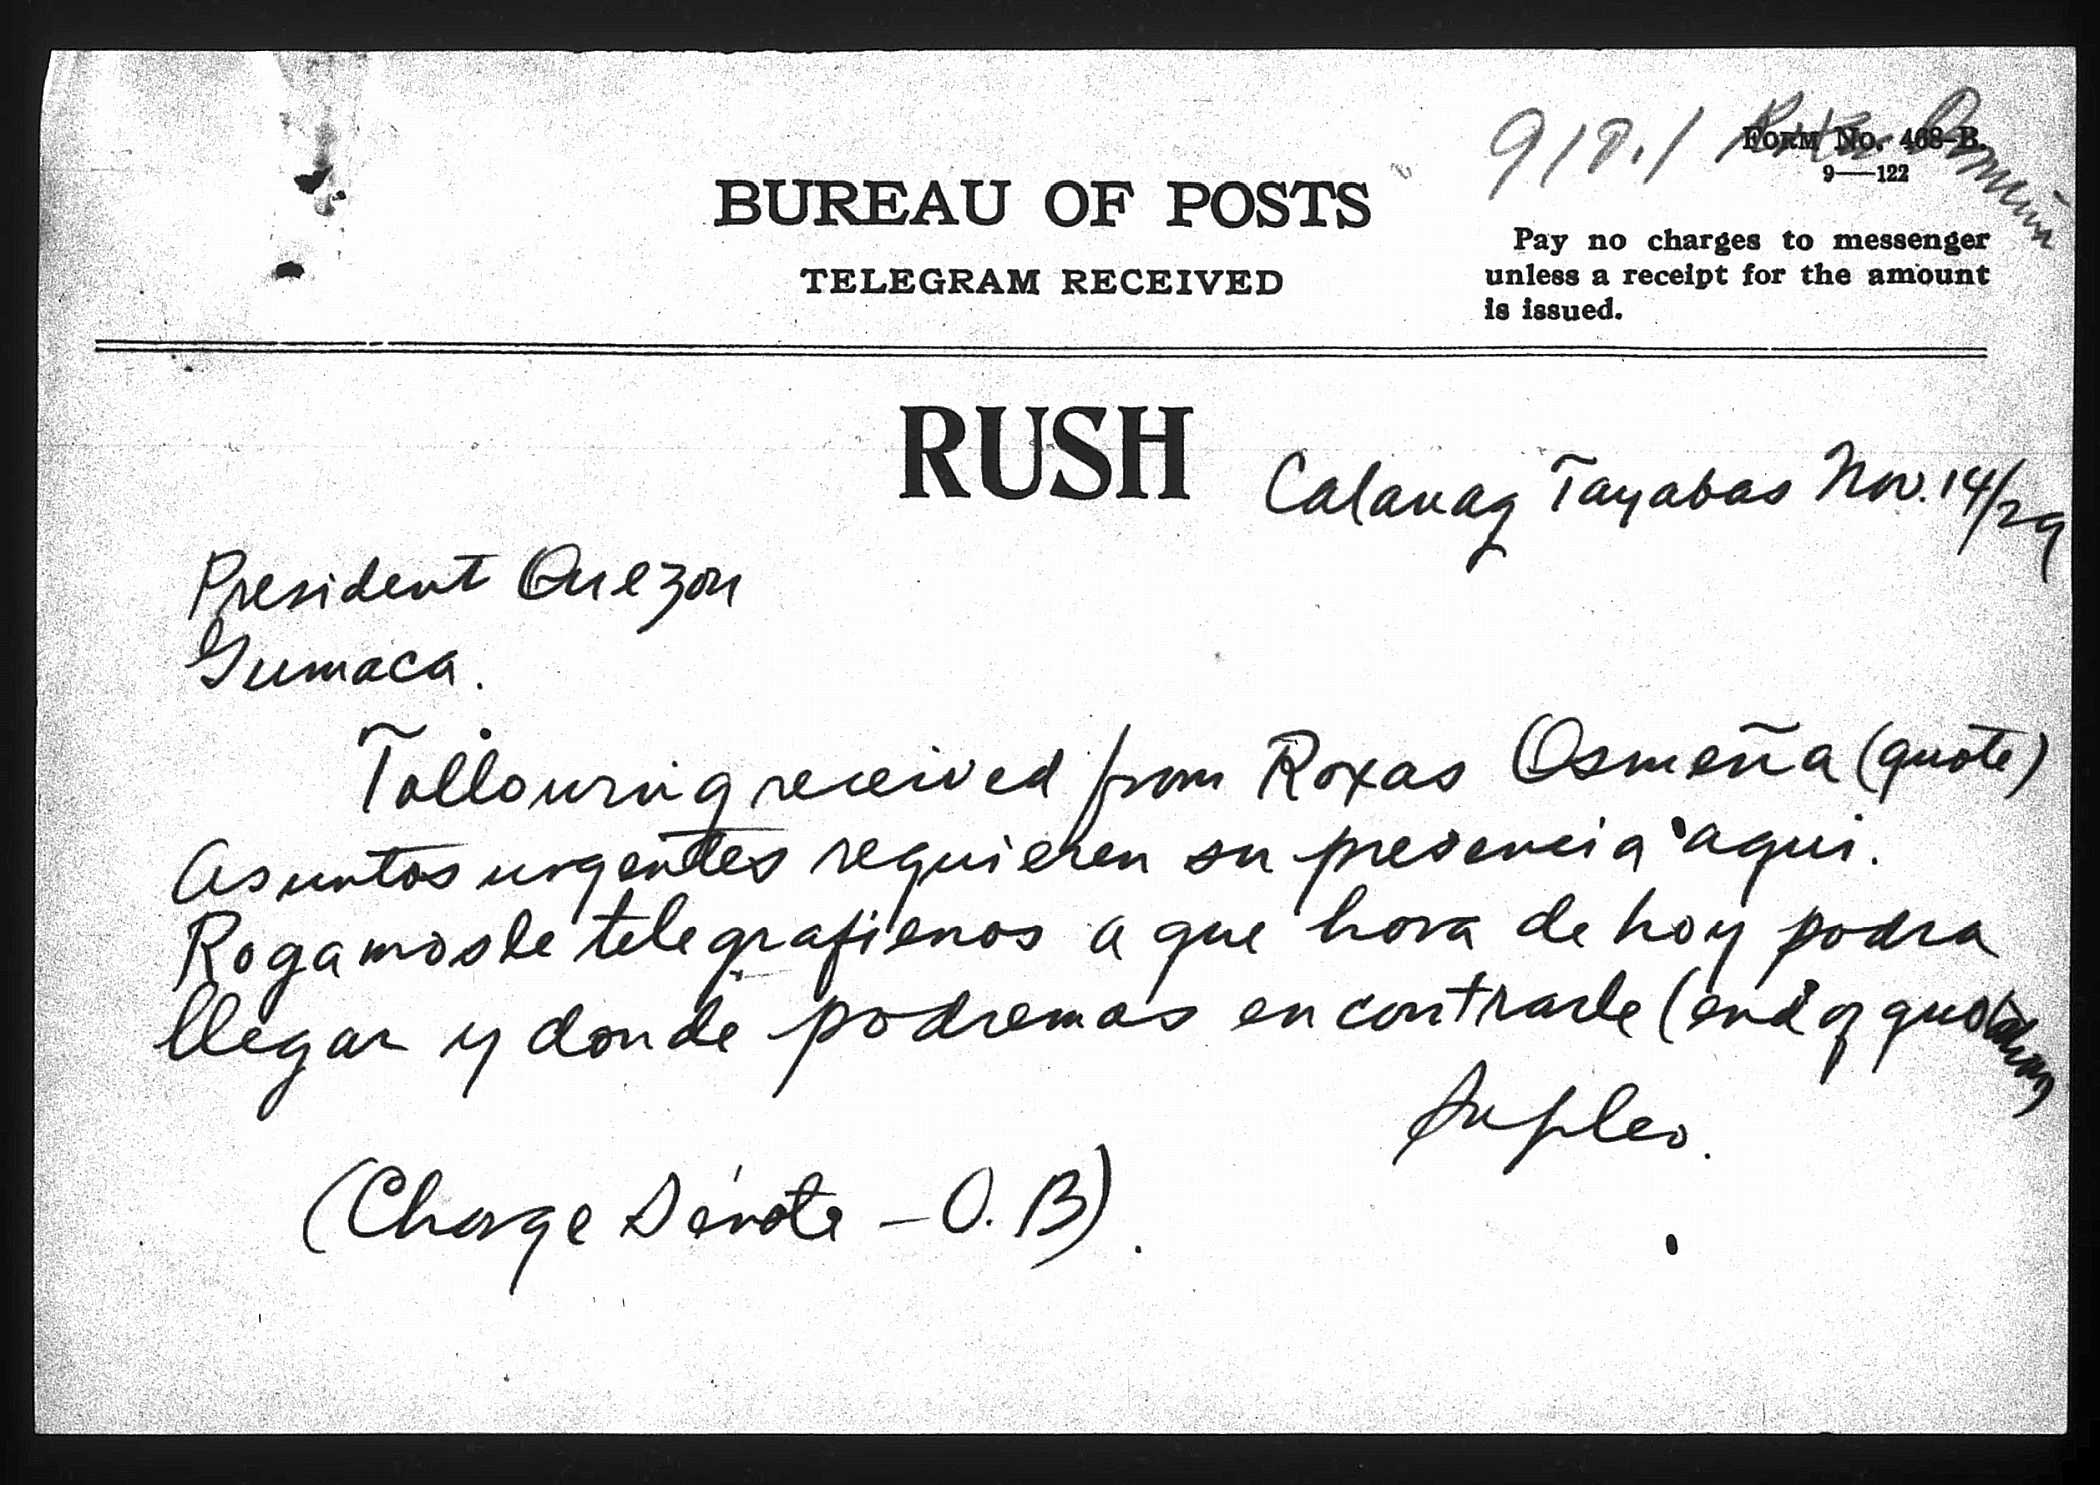 918.1
FORM No. 468-B.
9—122
BUREAU OF POSTS
TELEGRAM RECEIVED
Pay no charges to messenger
unless a receipt for the amount
is issued.
RUSH
Calauag Tayabas Nov. 14/29
President Quezon
Gumaca.
Following received from Roxas Osmeña (quote)
Asuntos urgentes requieren su presencia aqui.
Rogamosle telegrafienos a que hora de hoy podra
llegar y donde podremos encontrarle (end of quotation)
Supleo.
(Charge Senate - O.B).